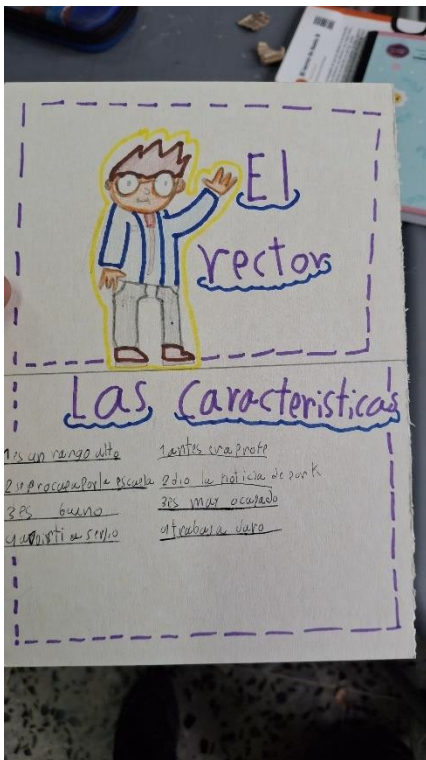 El
rector
Las caracteristicas
1 es un rango alto
2 se procupa por la escuela
3 es bueno
4 serio
1 antes era profe
2 dio la noticia de
3 es muy ocupado
4 trabaja duro